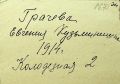 Грачева
Евгения Кузьминична
1914.
Колодезная 2